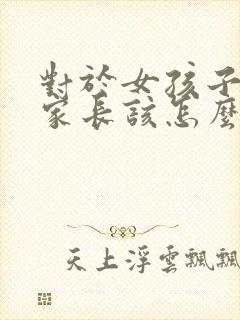 對於女孩子
家長該怎麼
天上浮雲飄飄